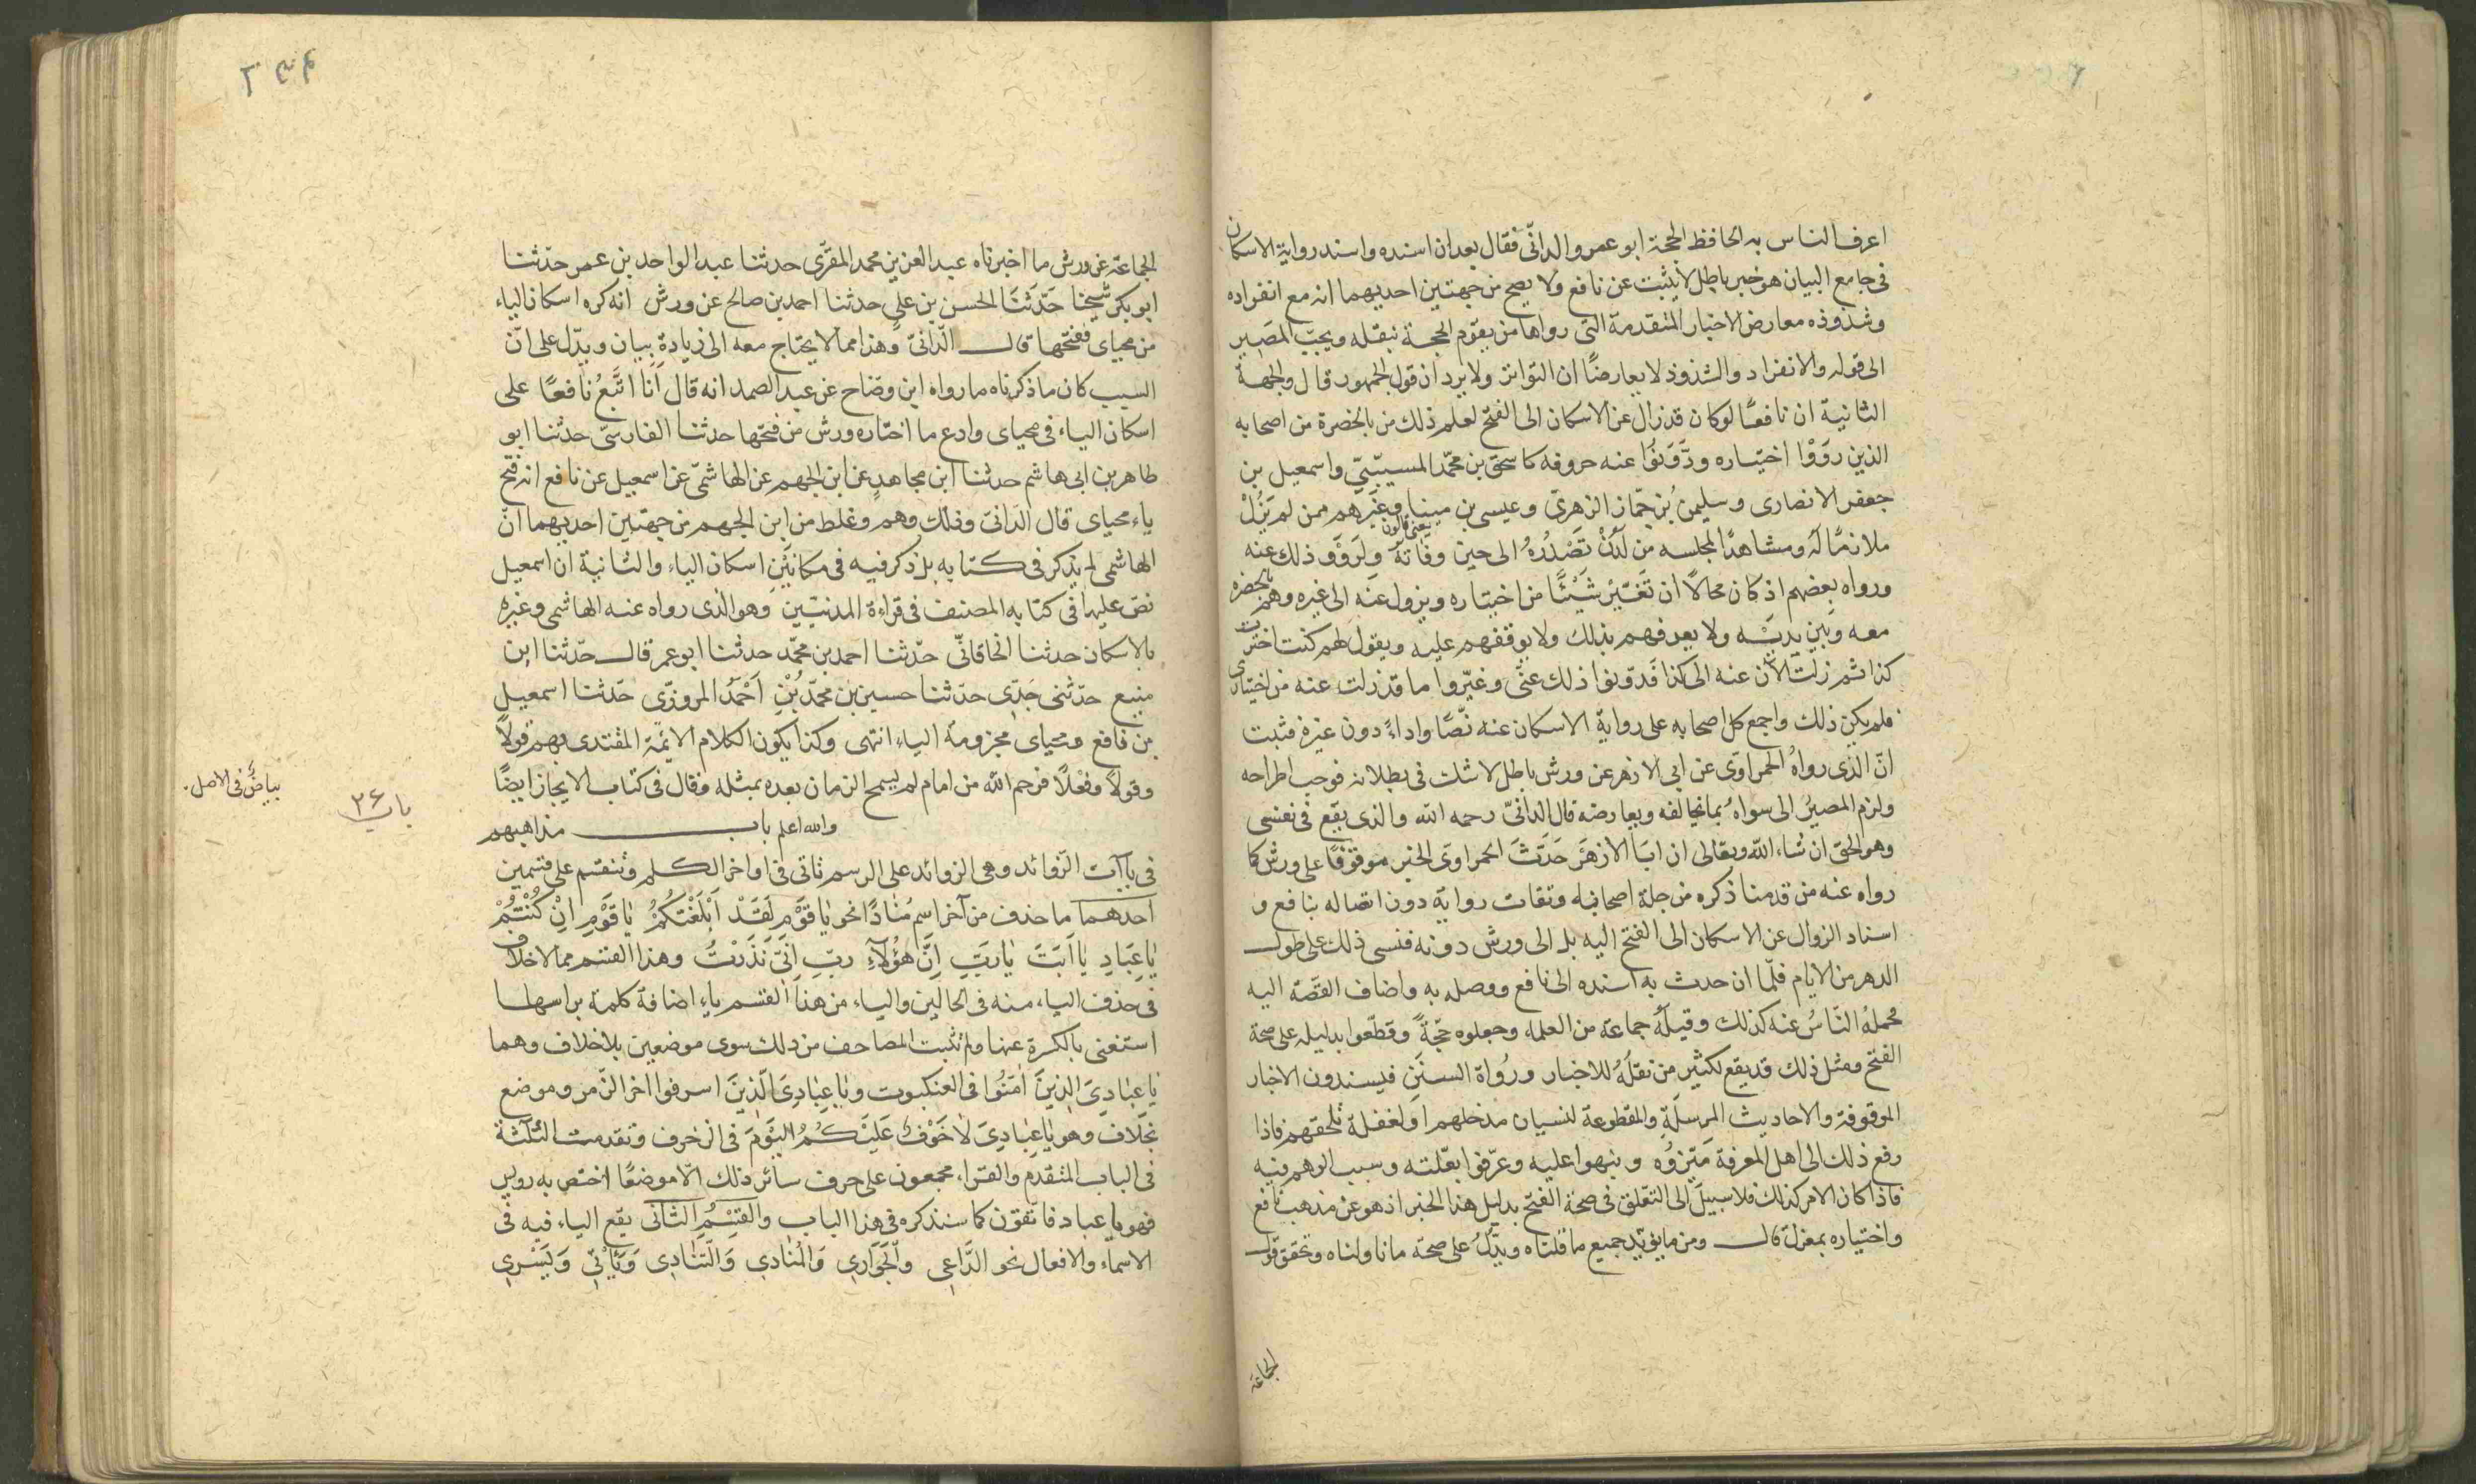 اعرف الناس به الحافظ الحجة ابو عمرو الدانّى فقال بعد ان اسنده واسند رواية الاسكان
فى جامع البيان هو خبر باطل لا يثبت عن نافع ولا يصح من جهتين احديهما انه مع انفراده
وشذوذه معارض الاخبار المتقدمة التى رواها من يقوم الحجة بنقله ويجب المصير
الى قوله والانفراد والشذوذ لا يعارضان التواتر ولا يرد ان قول الجمهور قال والجهة
الثانية ان نافعًا لو كان قد زال عن الاسكان الى الفتح لعلم ذلك من بالحضرة من اصحابه
الذين رووا اختياره ودَوَّنُوا عنه حروفه كاسحق بن محمّد المسيّبىّ واسمعيل بن
جعفر الانصارى وسليمن بن جمّاز الزهرىّ وعيسى بن مينا وغيرهم ممن لم يزل
يعنى قالون
ملازمًا له ومشاهدًا لمجلسه من لدن تَصَدُّرِهُ الى حين وفاته ولرووا ذلك عنه
ورواه بعضهم اذ كان محالًا ان تغيّر شيئًا من اختياره ويزول عنه الى غيره وهم بالحضرة
معه وبين يديه ولا يعرفهم بذلك ولا يوقفهم عليه ويقول لهم كنت اخترت
كذا ثم زلت الآن عنه الى كذا فدوّنوا ذلك عنّى وغيّروا ما قد زلت عنه من اختيارى
فلم يكن ذلك واجمع كل اصحابه على رواية الاسكان عنه نصًّا واداءً دون غيره فثبت
انّ الذى رواهُ الحمراوى عن ابى الازهر عن ورش باطل لا شك فى بطلانه فوجب اطراحه
ولزم المصيرُ الى سواهُ بما يخالفه ويعارضه قال الدانىّ رحمه الله والذى يقع فى نفسى
وهو الحق ان شاء الله وتعالى ان ابا الازهر حَدَّثَ الحمراوى الخبر موقوفًا على ورش كما
رواه عنه من قدمنا ذكره من جلة اصحابه وثقات رواية دون اتصاله بنافع و
اسناد الزوال عن الاسكان الى الفتح اليه بل الى ورش دونه فنسى ذلك على طول
الدهر من الايام فلمّا ان حدث به اسنده الى نافع ووصله به واضاف القصّة اليه
فحملهُ النّاسُ عنه كذلك وقبلهُ جماعة من العلماء وجعلوه حجّةً وقطعوا بدليله على صحة
الفتح ومثل ذلك قد يقع لكثير من نقله للاخبار ورُواة السننِ فيسندون الاخبار
الموقوفة والاحاديث المرسلةِ والمقطوعة لنسيان مدخلهم او لغفلة تلحقهم فاذا
رفع ذلك الى اهل المعرفة مَيّزوُه ونبهوا عليه وعرّفوا بعلّته وسبب الوهم فيه
فاذا كان الامر كذلك فلا سبيل الى التعلق فى صحة الفتح بدليل هذا الخبر اذ هو عن مذهب نافع
واختياره بمعزل قال ومن ما يؤيد جميع ما قلناه ويدلّ على صحة ما تاولناه وتحقق قول
الجماعة
٢٣۴
الجماعة عن ورش ما اخبرناه عبد العزيز بن محمد المقرّى حدثنا عبد الواحد بن عمر حدّثنا
ابو بكر شيخنا حَدّثنَا الحسن بن على حدثنا احمد بن صالح عن ورش انه كره اسكان الياء
من محياى ففتحها قال الدّانىّ وهذا مما لا يحتاج معه الى زيادة بيان ويدّل على انّ
السبب كان ما ذكرناه ما رواه ابن وضاح عن عبد الصمد انه قال انا اتَّبعُ نافعًا على
اسكان الياء فى محياى وادع ما اختاره ورش من فتحها حدثنا الفارسىّ حدثنا ابو
طاهر بن ابى هاشم حدثنا ابن مجاهدٍ عن ابن الجهم عن الهاشمىّ عن اسمعيل عن نافع انه فتح
ياء محياى قال الدانىّ وذلك وهم وغلط من ابن الجهم من جهتين احديهما انّ
الهاشمى لم يذكر فى كتابه بل ذكر فيه فى مكانين اسكان الياء والثانية ان اسمعيل
نصّ عليها فى كتابه المصنف فى قراءة المدنيّين وهو الذى رواه عنه الهاشمى وغيره
بالاسكان حدثنا الخاقانىّ حدّثنا احمد بن محمّد حدثنا ابو عمر قال حدّثنا ابن
منيع حدّثنى جَدّى حدّثنا حسين بن محمّد بْنِ اَحْمَدَ المروزّى حدّثنا اسمعيل
بن نافع ومحياى مجزومة الياء انتهى وكذا يكون الكلام الائمة المقتدى بهم قولًا
وقولًا وفعْلًا فرحم الله من امام لم يسمح الزمان بعده بمثله وقال فى كتاب الايجاز ايضًا
بياضٌ فى الاصل.
باب ٢۶
والله اعلم باب مذاهبهم
فى ياآت الزّوائد وهى الزوائد على الرسم تاتى فى اواخر الكلم وتنقسم على قسمين
احدهما ما حذف من آخر اسم مُنادًا نحو يا قَوْمِ لَقَدْ اَبْلَغْتُكُمْ يا قَوْمِ اِنْ كُنْتُمْ
يا عِبَادِ يا اَبَتَ يا رَبِّ اِنَّ هؤُلاَءِ ربِّ اِنّى نَذَرْتُ وهذا القسم مما لا خلاف
فى حذف الياء منه فى الحالين والياء من هذا القسم ياء اضافة كلمة براسها
استغنى بالكسرة عنها ولم تثبت المصاحف من ذلك سوى موضعين بلا خلاف وهما
يا عبادىَ الذينَ آمَنُوا فى العنكبوت ويا عِبادِىَ الّذينَ اسرفوا اخر الزّمر وموضع
بخلاف وهو يا عِبادِىَ لا خَوْفٌ عَلَيْكُمُ اليَوْمَ فى الزخرف وتقدمت الثلاثة
فى الباب المتقدم والقراء مجمعون على حرف سائر ذلك الّا موضعًا اختص به رويس
فهو يا عباد فاتقون كما سنذكره فى هذا الباب والقِسْمُ الثانى يقع الياء فيه فى
الاسماء والافعال نحو الدّاعى وَالجَوَارى وَالمُنادى وَالتّنَادى وَيَأتى وَيَسْرى